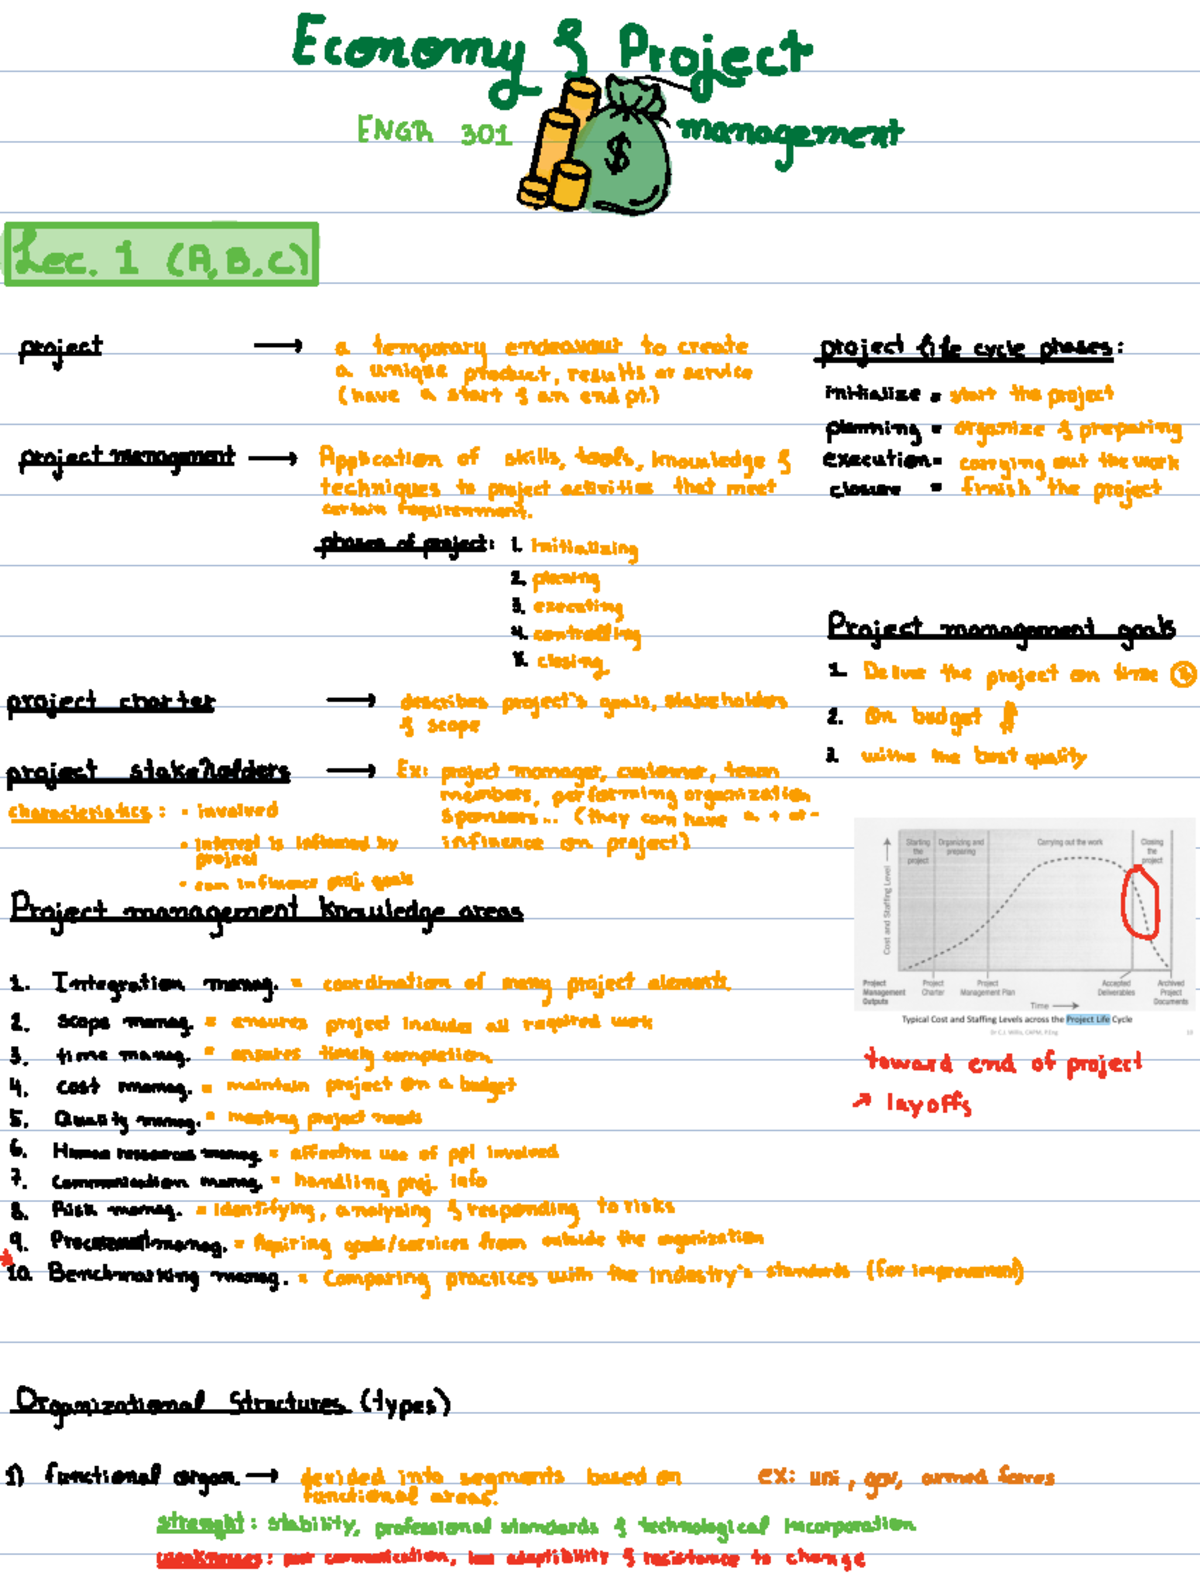 Economy & Project
management
ENGR 301
Lec. 1 (A,B,C)
project → a temporary endeavour to create
a unique product, results or service
(have a start & an end pt.)
project management → Application of skills, tools, knowledge &
techniques to project activities that meet
certain requirement.
phases of project: 1. Initializing
2. planing
3. executing
4. controlling
5. closing
project life cycle phases:
initialize = start the project
planning = organize & preparing
execution = carrying out the work
closure = finish the project
Project management goals
1. Deliver the project on time
2. On budget $
3. withe the best quality
project charter → describes project's goals, stakeholders
& scope
project stakeholders → Ex: project manager, customer, team
members, performing organization
sponsors... (they can have a + or -
infinence on project)
characteristics:
• involved
• interest is inflenced by
project
• can influence proj. goals
Starting the project
Organizing and preparing
Carrying out the work
Closing the project
Cost and Staffing Level
Project Management Outputs
Project Charter
Project Management Plan
Accepted Deliverables
Archived Project Documents
Time →
Typical Cost and Staffing Levels across the Project Life Cycle
toward end of project
↗ layoffs
Project management knowledge areas
1. Integration manag. = coordination of many project elements.
2. Scope manag. = ensures project includes all required work
3. time manag. = ensures timely completion.
4. cost manag. = maintain project on a budget
5. Quality manag. = meeting project needs
6. Human resources manag. = effective use of ppl involved
7. Communication manag. = handling proj. info
8. Risk manag. = identifying, analysing & responding to risks
9. Procurement manag. = Aquiring goods/services from outside the organization
10. Benchmarking manag. = Comparing practices with the industry's standards (for improvement)
Organizational Structures (types)
1) functional organ. → devided into segments based on
functional areas.
ex: uni, gov, armed forces
strenght: stability, professional standards & technological incorporation
weaknesses: poor communication, low adaptibility & resistance to change